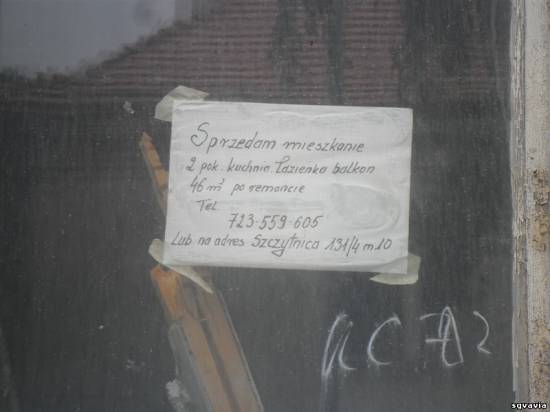 Sprzedam mieszkanie
2 pok. kuchnia łazienka balkon
46 m² po remoncie
Tel.
723-559-605
Lub na adres Szczytnica 131/4 m 10
sgvavia